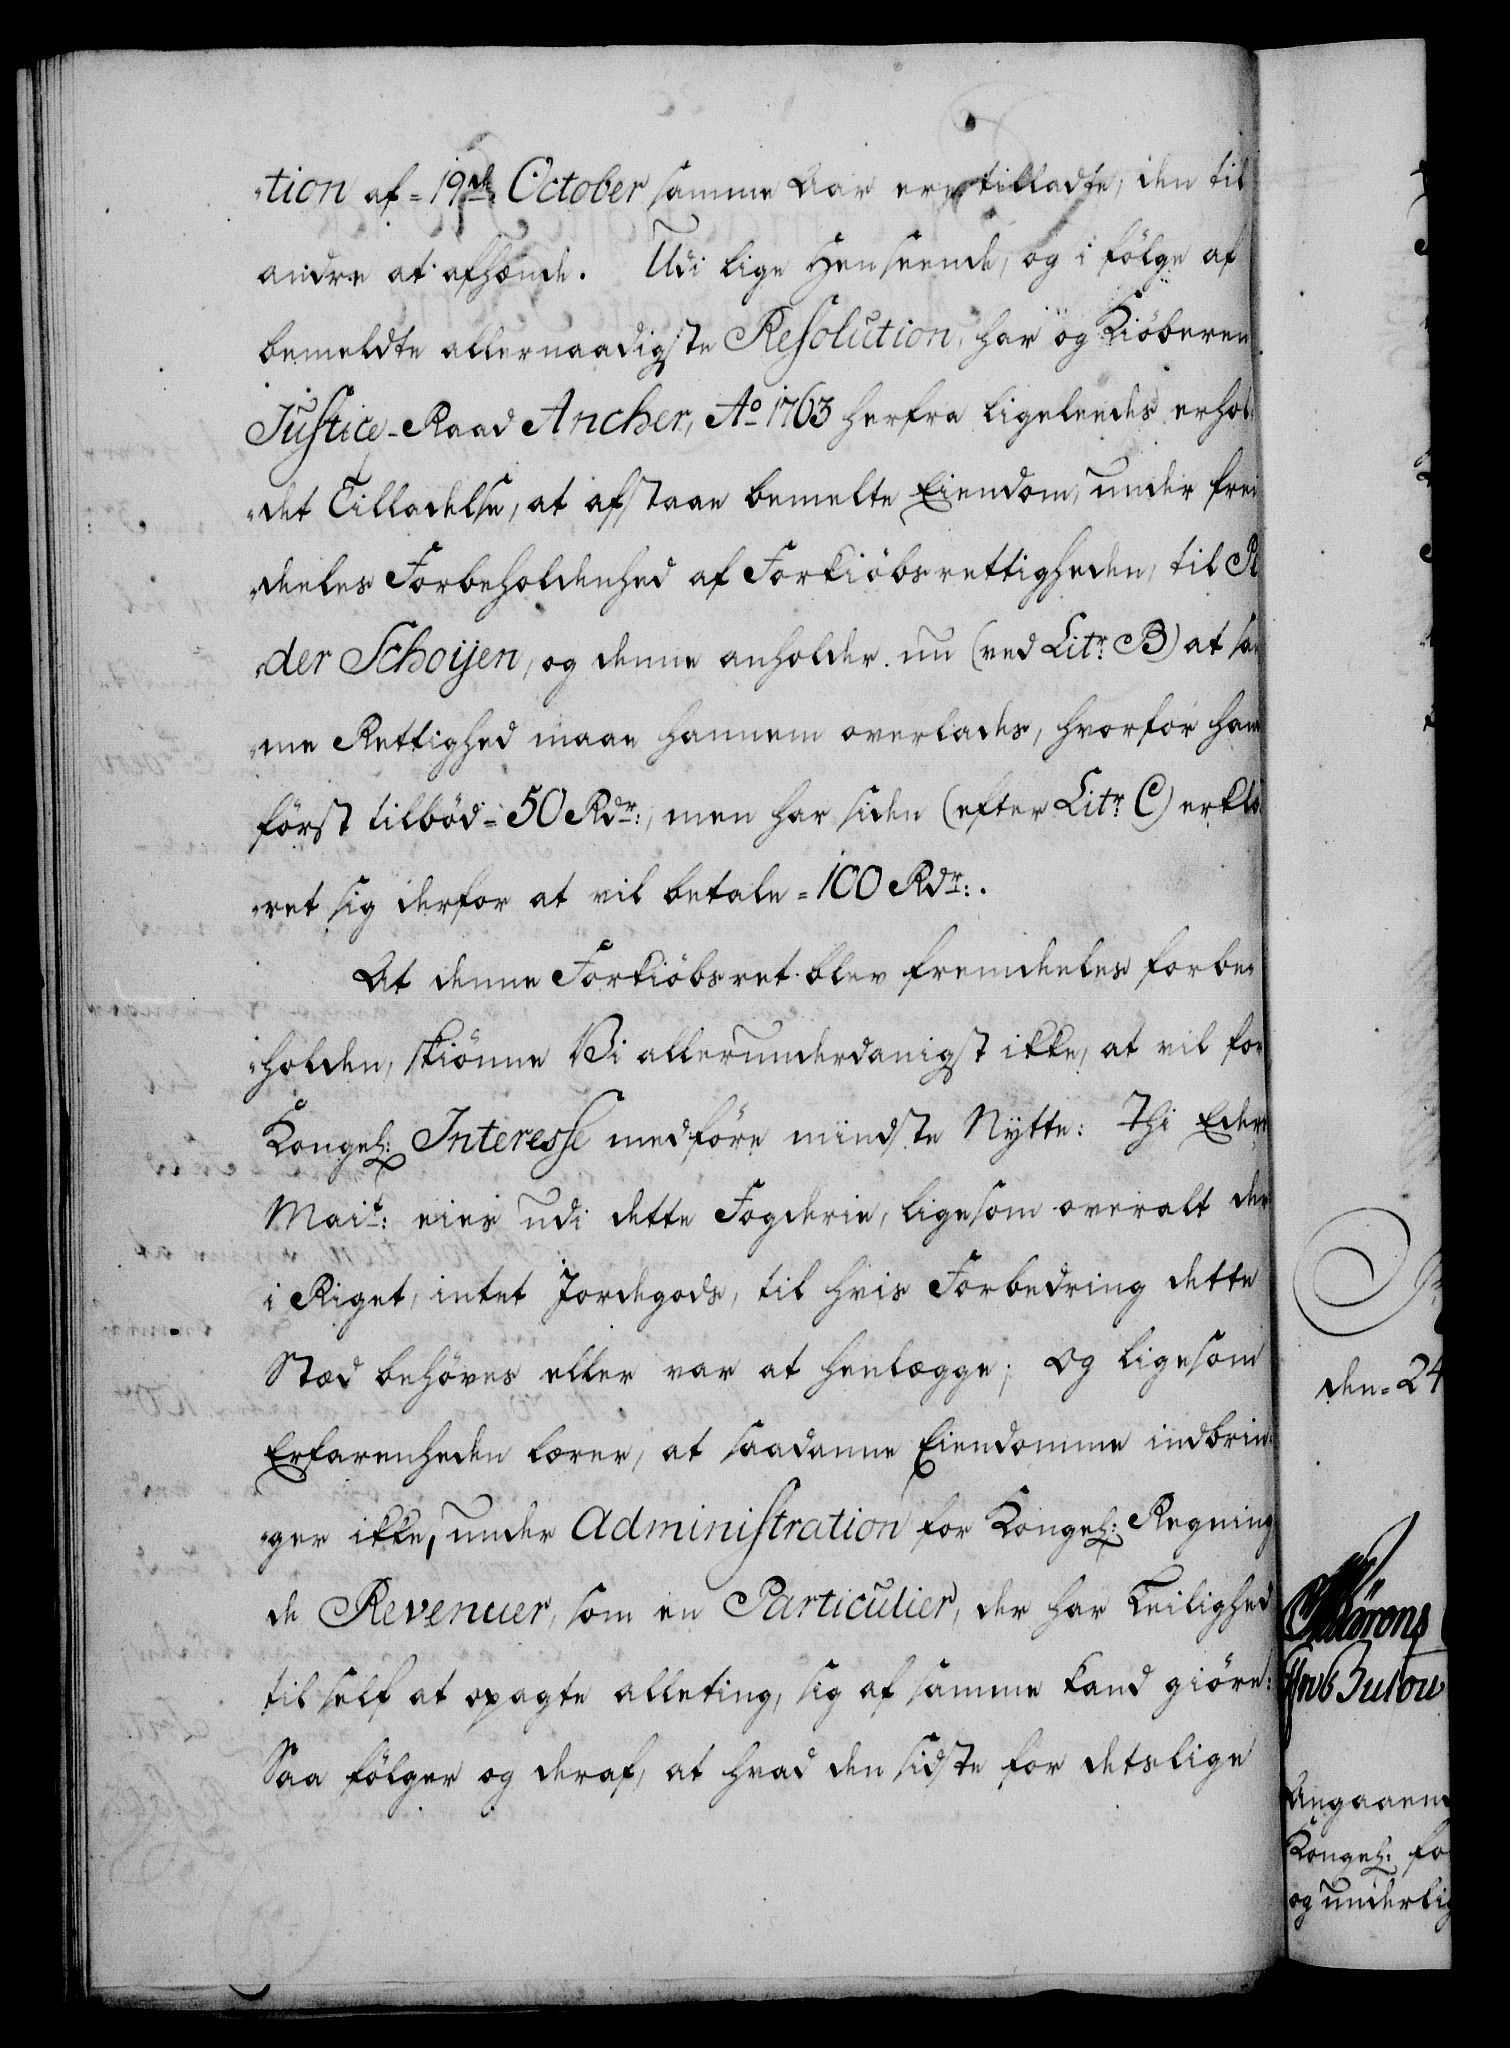 "tion af=19de October samme Aar ere tilladte, den til
andre at afhænde. Udi lige Henseende, og i fölge af
bemeldte allernaadigste Resolution, har og Kiöberen
Justice-Raad Ancher, Ao 1763 herfra ligeleedes erhol=
"det Tilladelse, at afstaae bemelte Eiendom, under frem
"deeles Forbeholdenhed af Forkiöbsrettigheden, til Pe
"der Schoijen, og denne anholder nu (ved Litr: B) at sam
"me Rettighed maae hannem overlades, hvorfor han
först tilböd=50 Rdr:, men har siden (efter Litr: C) erklæ
"ret sig derfor at vil betale=100 Rdr:.
At denne Forkiöbsret blev fremdeeles forbe=
"holden, skiönne Vi allerunderdanigst ikke, at vil for
Kongel: Interesse medföre mindste Nytte: Thi Eders
Mait: eies udi dette Fogderie, ligesom overalt der
i Riget, intet Jordegods, til hvis Forbedring dette
Stæd behöves eller var at henlægge; Og ligesom
Erfarenheden lærer, at saadanne Eiendomme indbrin=
"ger ikke, under Administration for Kongel: Regning
de Revenuer, som en Particulier, der har Leilighed
til self at opagte alleting, sig af samme kand giöre:
Saa fölger og deraf, at hvad den sidste for detslige
den=24
Angaaen
Kongel: fo
og underlig